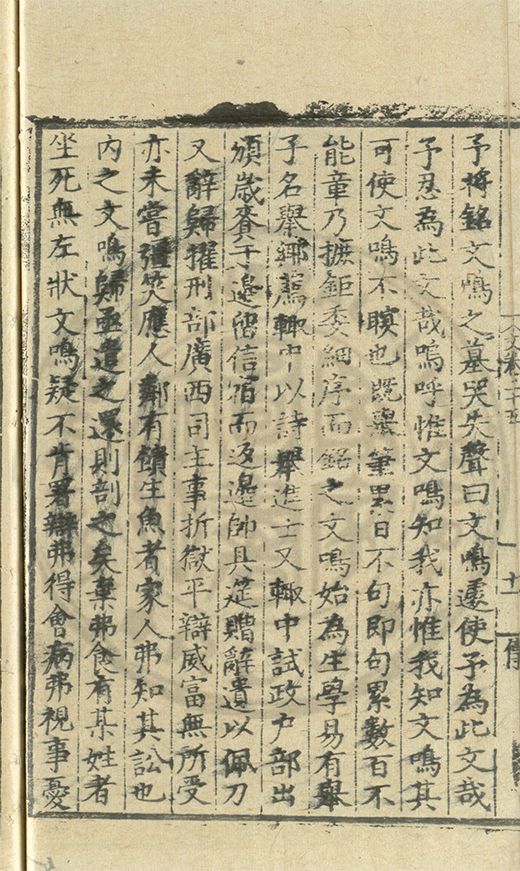 文卷二十五
十一
傅
予將銘文鳴之墓哭失聲曰文鳴遽使予為此文哉
予忍為此文哉嗚呼惟文鳴知我亦惟我知文鳴其
可使文鳴不瞑也既舉筆累日不句即句累數百不
能章乃摭鉅委細序而銘之文鳴始為生學易有舉
子名舉鄉薦輒中以詩舉進士又輒中試政戶部出
頒歲賚于邊部信宿而返邊帥具筵贈辭遺以佩刀
又辭歸擢刑部廣西司主事折獄平辯威富無所受
亦未嘗彊笑應人鄰有饋生魚者家人弗知其訟也
內之文鳴歸亟遣之還則剖之矣棄弗食有某姓者
坐死無左狀文鳴疑不肯署辯弗得會病弗視事憂